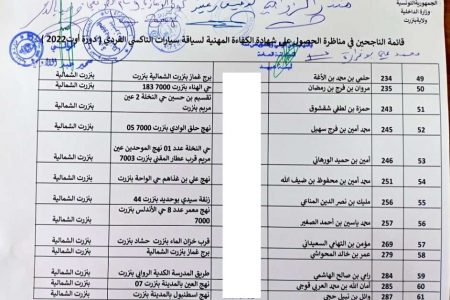 الجمهورية التونسية
وزارة الداخلية
ولاية بنزرت
قائمة الناجحين في مناظرة الحصول على شهادة الكفاءة المهنية لسياقة سيارات التاكسي الفردي (دورة أوت 2022)
49 234 حلمي بن محمد بن الأغة برج غماز بنزرت الشمالية بنزرت بنزرت الشمالية
50 235 مروان بن فرج بن رمضان حي الهناء بنزرت 7000 183 بنزرت الشمالية
51 243 حمزة بن لطفي شقشوق تقسيم بن حسين حي النخلة 2 عين مريم بنزرت بنزرت الشمالية
52 245 محمد أمين بن فرج سهيل نهج حلق الوادي بنزرت 7000 05 بنزرت الشمالية
53 246 أمين بن حميد الورهاني حي النخلة عدد 01 نهج الموحدين عين مريم قرب عطار المقني بنزرت 7003 بنزرت الشمالية
54 251 محمد أمين بن محفوظ بن ضيف الله نهج علي بن غذاهم حي الواحة بنزرت بنزرت الشمالية
55 256 مليك بن نصر الدين المناعي زنقة سيدي بوحديد بنزرت 44 بنزرت الشمالية
56 257 محمد ياسين بن أحمد الصغير نهج معمر عدد 8 حي الأندلس بنزرت 7000 بنزرت الشمالية
57 271 مؤمن بن التهامي السعيداني قرب خزان الماء بنزرت حشاد بنزرت بنزرت الشمالية
58 279 عمر بن خالد المحواشي برج غماز بنزرت الشمالية
59 284 رامي بن صالح الهاشمي طريق المدرسة الكدية الروابي بنزرت بنزرت الشمالية
60 286 أمان الله بن محمد العربي قوجي نهج العين بالمدينة بنزرت 07 بنزرت الشمالية
61 287 وائل بن نبيل حجي نهج إسطنبول بالمدينة بنزرت بنزرت الشمالية